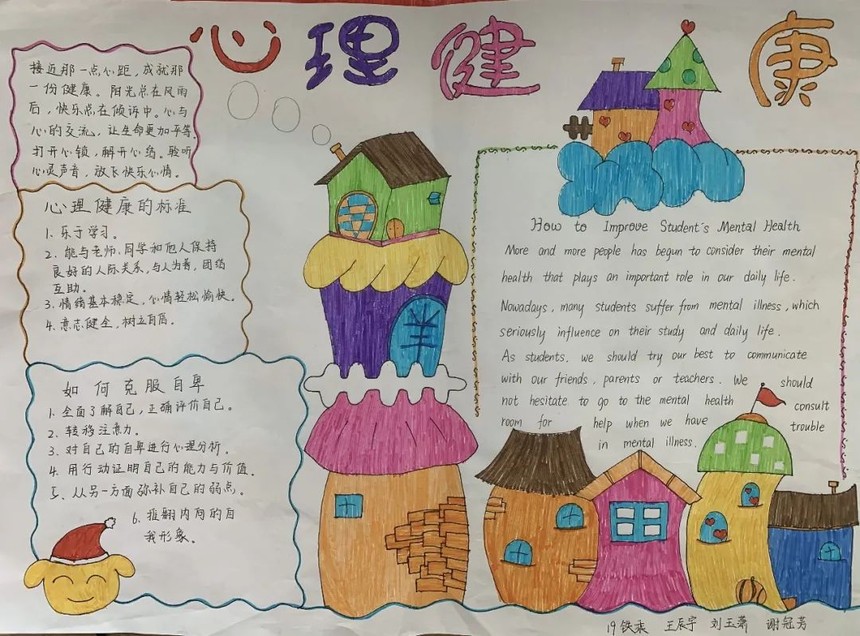 心理健康
接近那一点心距，成就那
一份健康。阳光总在风雨
后，快乐总在倾诉中。心与
心的交流，让生命更加平等。
打开心锁，解开心结。聆听
心灵声音，放飞快乐心情。
心理健康的标准
1. 乐于学习。
2. 能与老师、同学和他人保持
良好的人际关系，与人为善，团结
互助。
3. 情绪基本稳定，心情轻松愉快。
4. 意志健全，树立自信。
如何克服自卑
1. 全面了解自己，正确评价自己。
2. 转移注意力。
3. 对自己的自卑进行心理分析。
4. 用行动证明自己的能力与价值。
5. 从另一方面弥补自己的弱点。
6. 内向的自
我形象。
How to Improve Student's Mental Health
More and more people has begun to consider their mental
health that plays an important role in our daily life.
Nowadays, many students suffer from mental illness, which
seriously influence on their study and daily life.
As students, we should try our best to communicate
with our friends, parents or teachers. We should
not hesitate to go to the mental health consult
room for help when we have trouble
in mental illness.
19铁乘 王辰宇 刘玉萧 谢冠芳